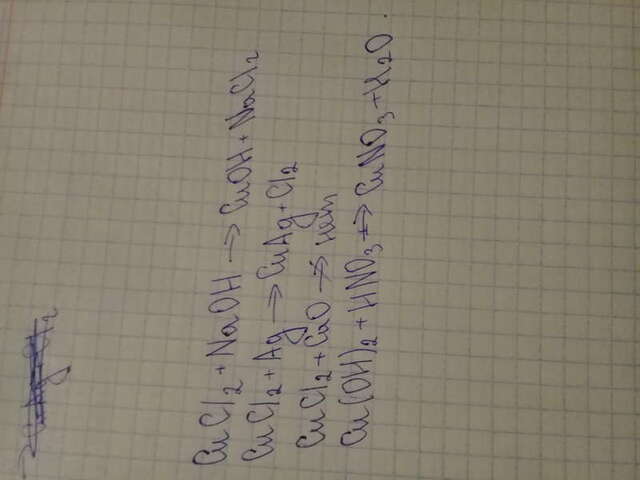 CuCl2 + NaOH → CuOH + NaCl2
CuCl2 + Ag → CuAg + Cl2
CuCl2 + CuO → нет
Cu(OH)2 + HNO3 → CuNO3 + H2O